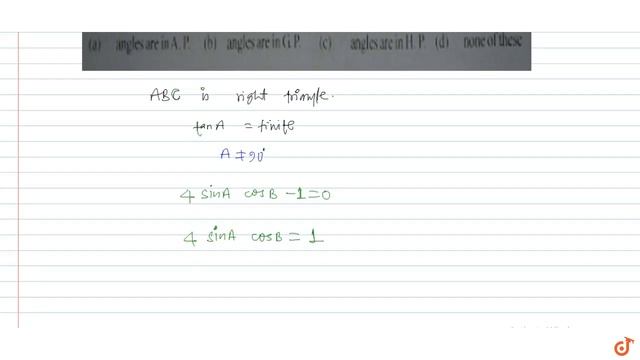 (a) angles are in A.P. (b) angles are in G.P. (c) angles are in H.P. (d) none of these
ABC is right triangle.
tanA = finite
A ≠ 90°
4 sinA cosB - 1 = 0
4 sinA cosB = 1